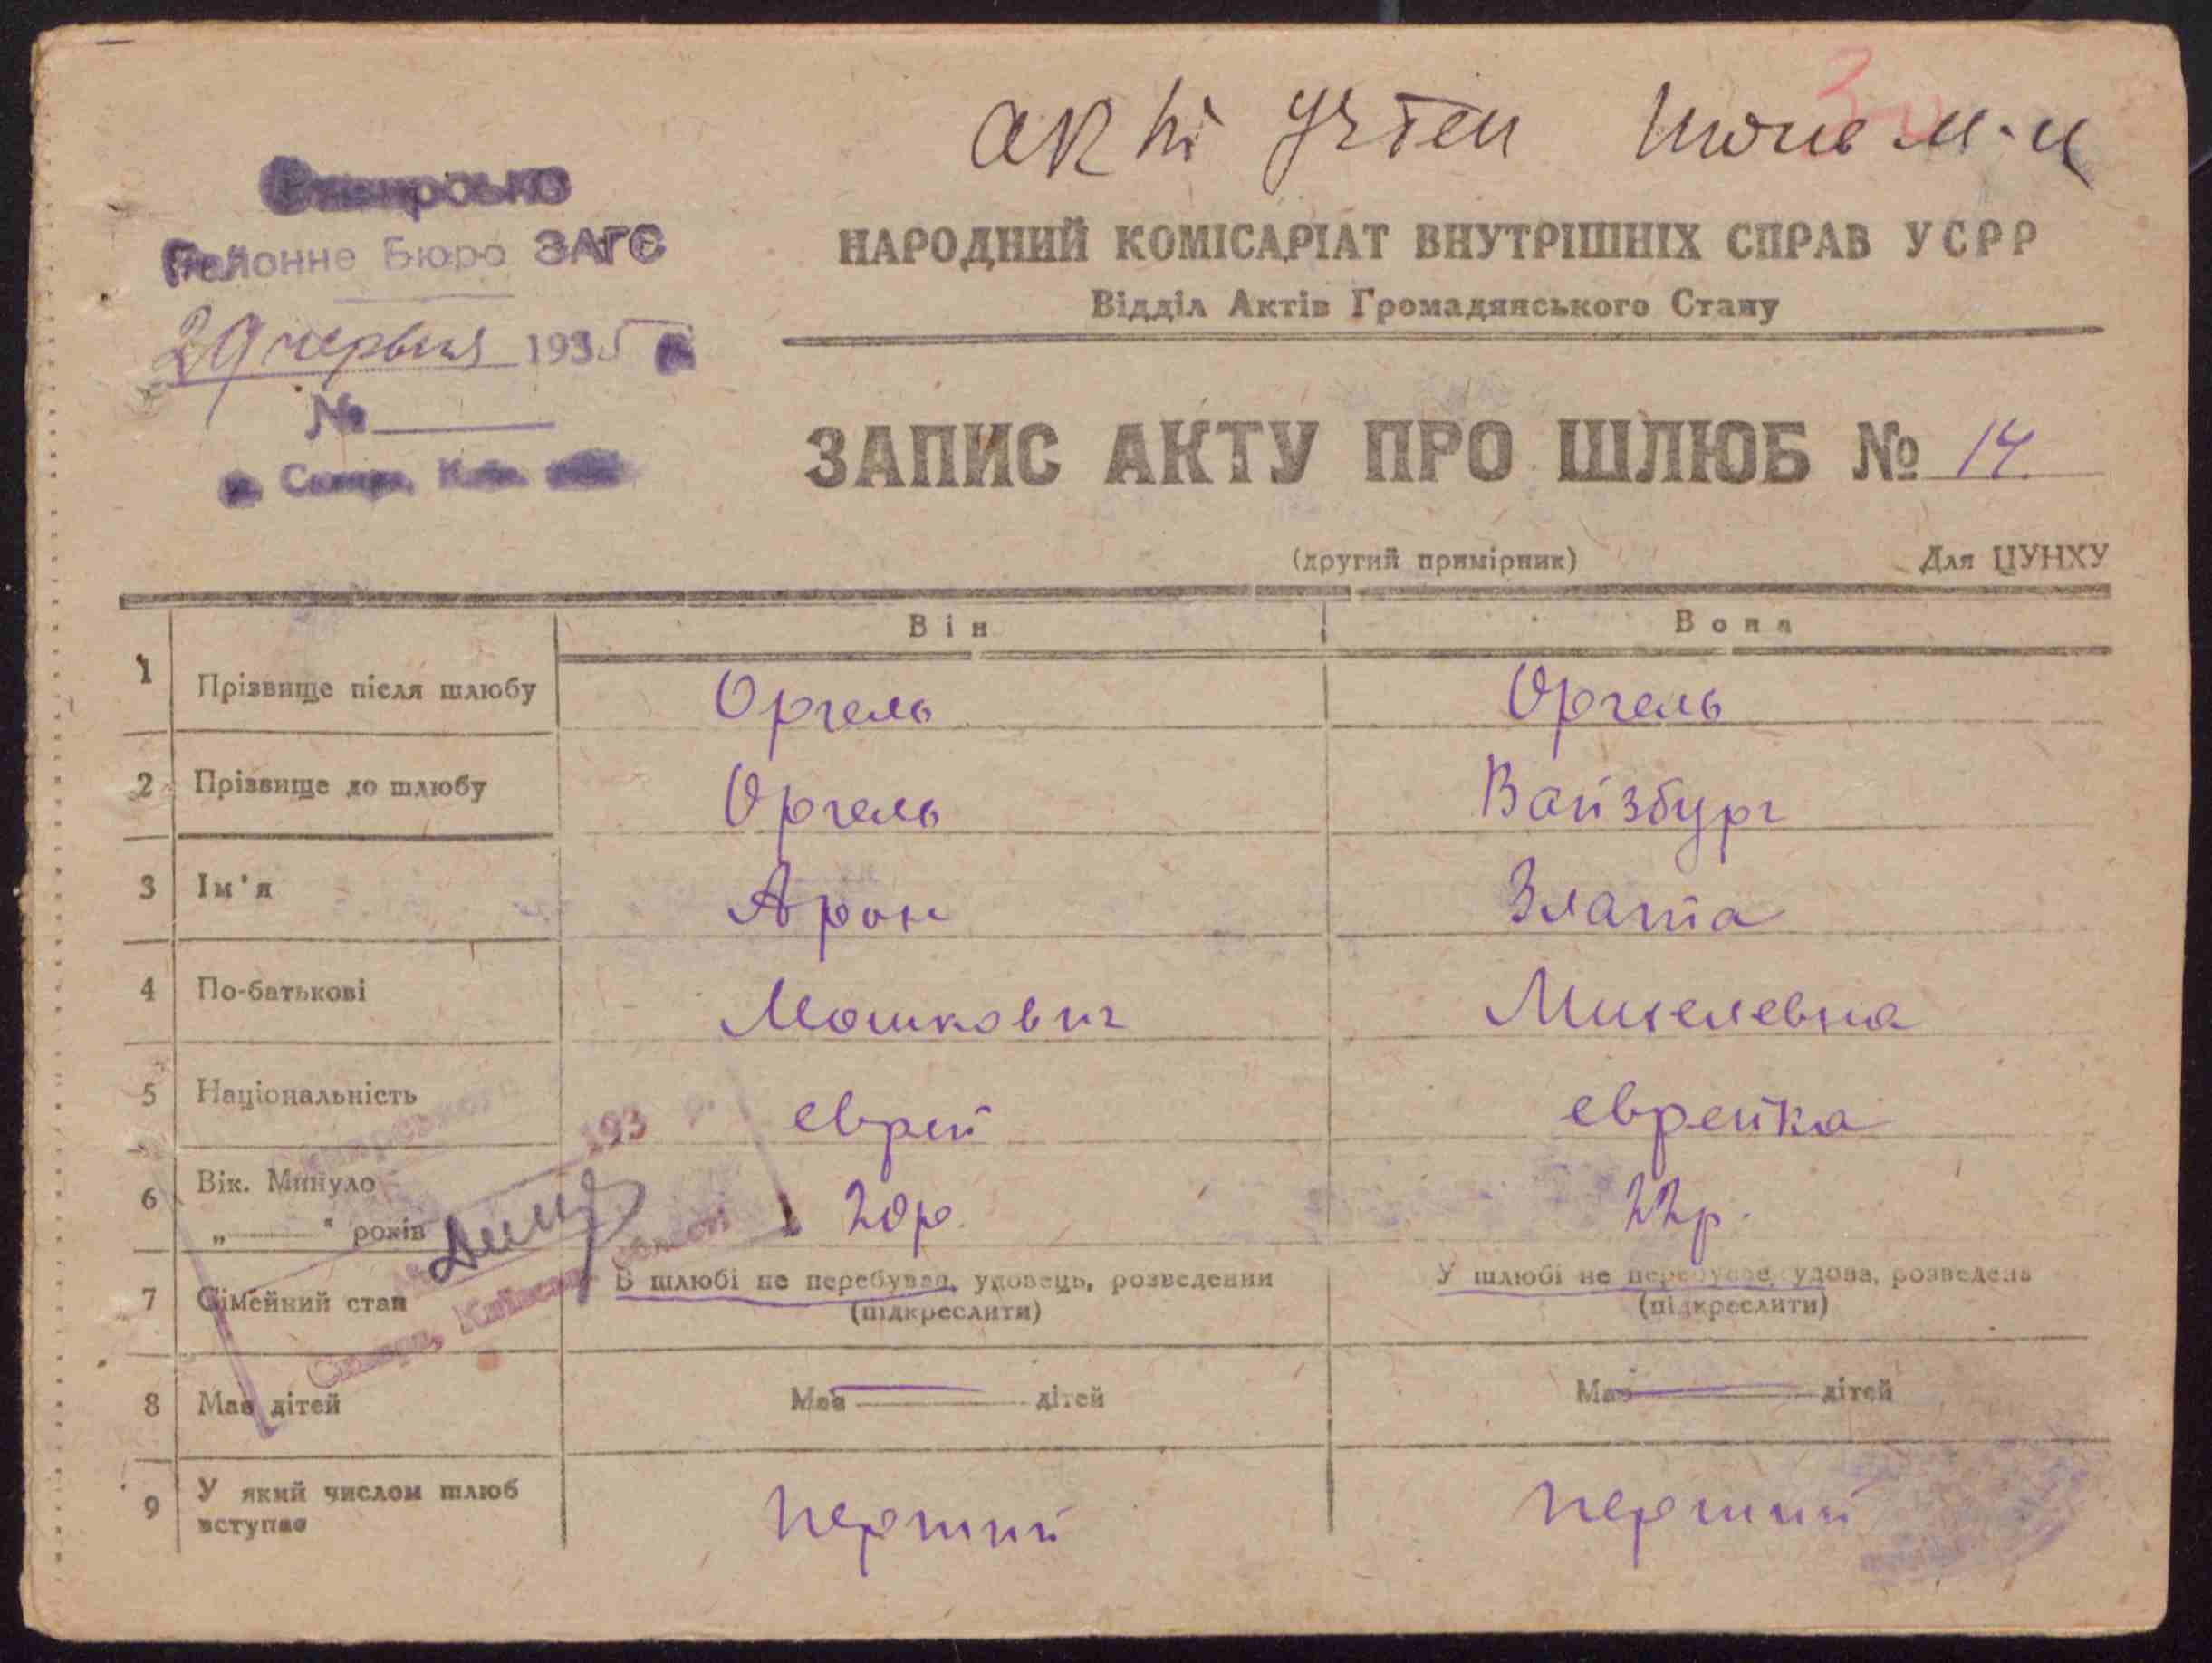 акт учтен июнь м-ц
Сквирсько
Районне Бюро ЗАГС
29 червня 1935
№
м. Сквира, Київ.
НАРОДНИЙ КОМІСАРІАТ ВНУТРІШНІХ СПРАВ УСРР
Відділ Актів Громадянського Стану
ЗАПИС АКТУ ПРО ШЛЮБ № 14
(другий примірник) Для ЦУНХУ
Він Вона
1 Прізвище після шлюбу Оргель Оргель
2 Прізвище до шлюбу Оргель Вайзбург
3 Ім'я Арон Злата
4 По-батькові Мошкович Михелевна
5 Національність еврей еврейка
193
6 Вік. Минуло
„ “ років 20р. 22р.
7 Сімейний стан В шлюбі не перебував, удовець, розведений У шлюбі не перебуває, удова, розведена
(підкреслити) (підкреслити)
Сквира, Київської області
8 Має дітей Має дітей Має дітей
9 У який числом шлюб
вступає перший перший